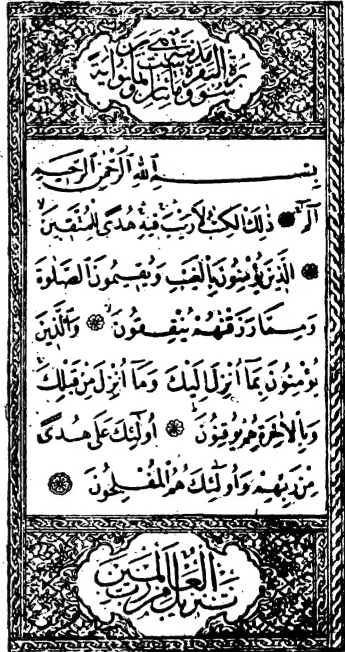 سورة البقرة
بِسْمِ ٱللّٰهِ ٱلرَّحْمٰنِ ٱلرَّحِيمِ
الٓمٓ ذٰلِكَ الْكِتٰبُ لَارَيْبَ فِيهِ هُدًى لِلْمُتَّقِينَ
الَّذِينَ يُؤْمِنُونَ بِالْغَيْبِ وَيُقِيمُونَ الصَّلٰوةَ
وَمِمَّا رَزَقْنٰهُمْ يُنْفِقُونَ وَالَّذِينَ
يُؤْمِنُونَ بِمَٓا اُنْزِلَ اِلَيْكَ وَمَٓا اُنْزِلَ مِنْ قَبْلِكَ
وَبِالْاٰخِرَةِ هُمْ يُوقِنُونَ اُولٰٓئِكَ عَلٰى هُدًى
مِنْ رَبِّهِمْ وَاُولٰٓئِكَ هُمُ الْمُفْلِحُونَ
تنزيل من رب العالمين